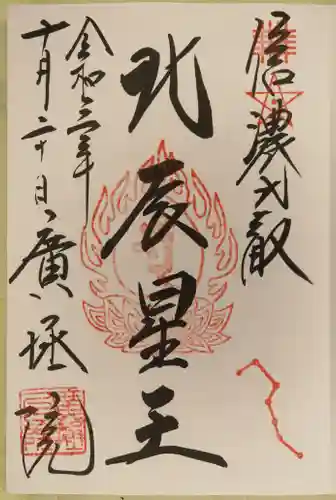 信濃比叡
北辰星王
令和三年
十月二十日
廣拯院